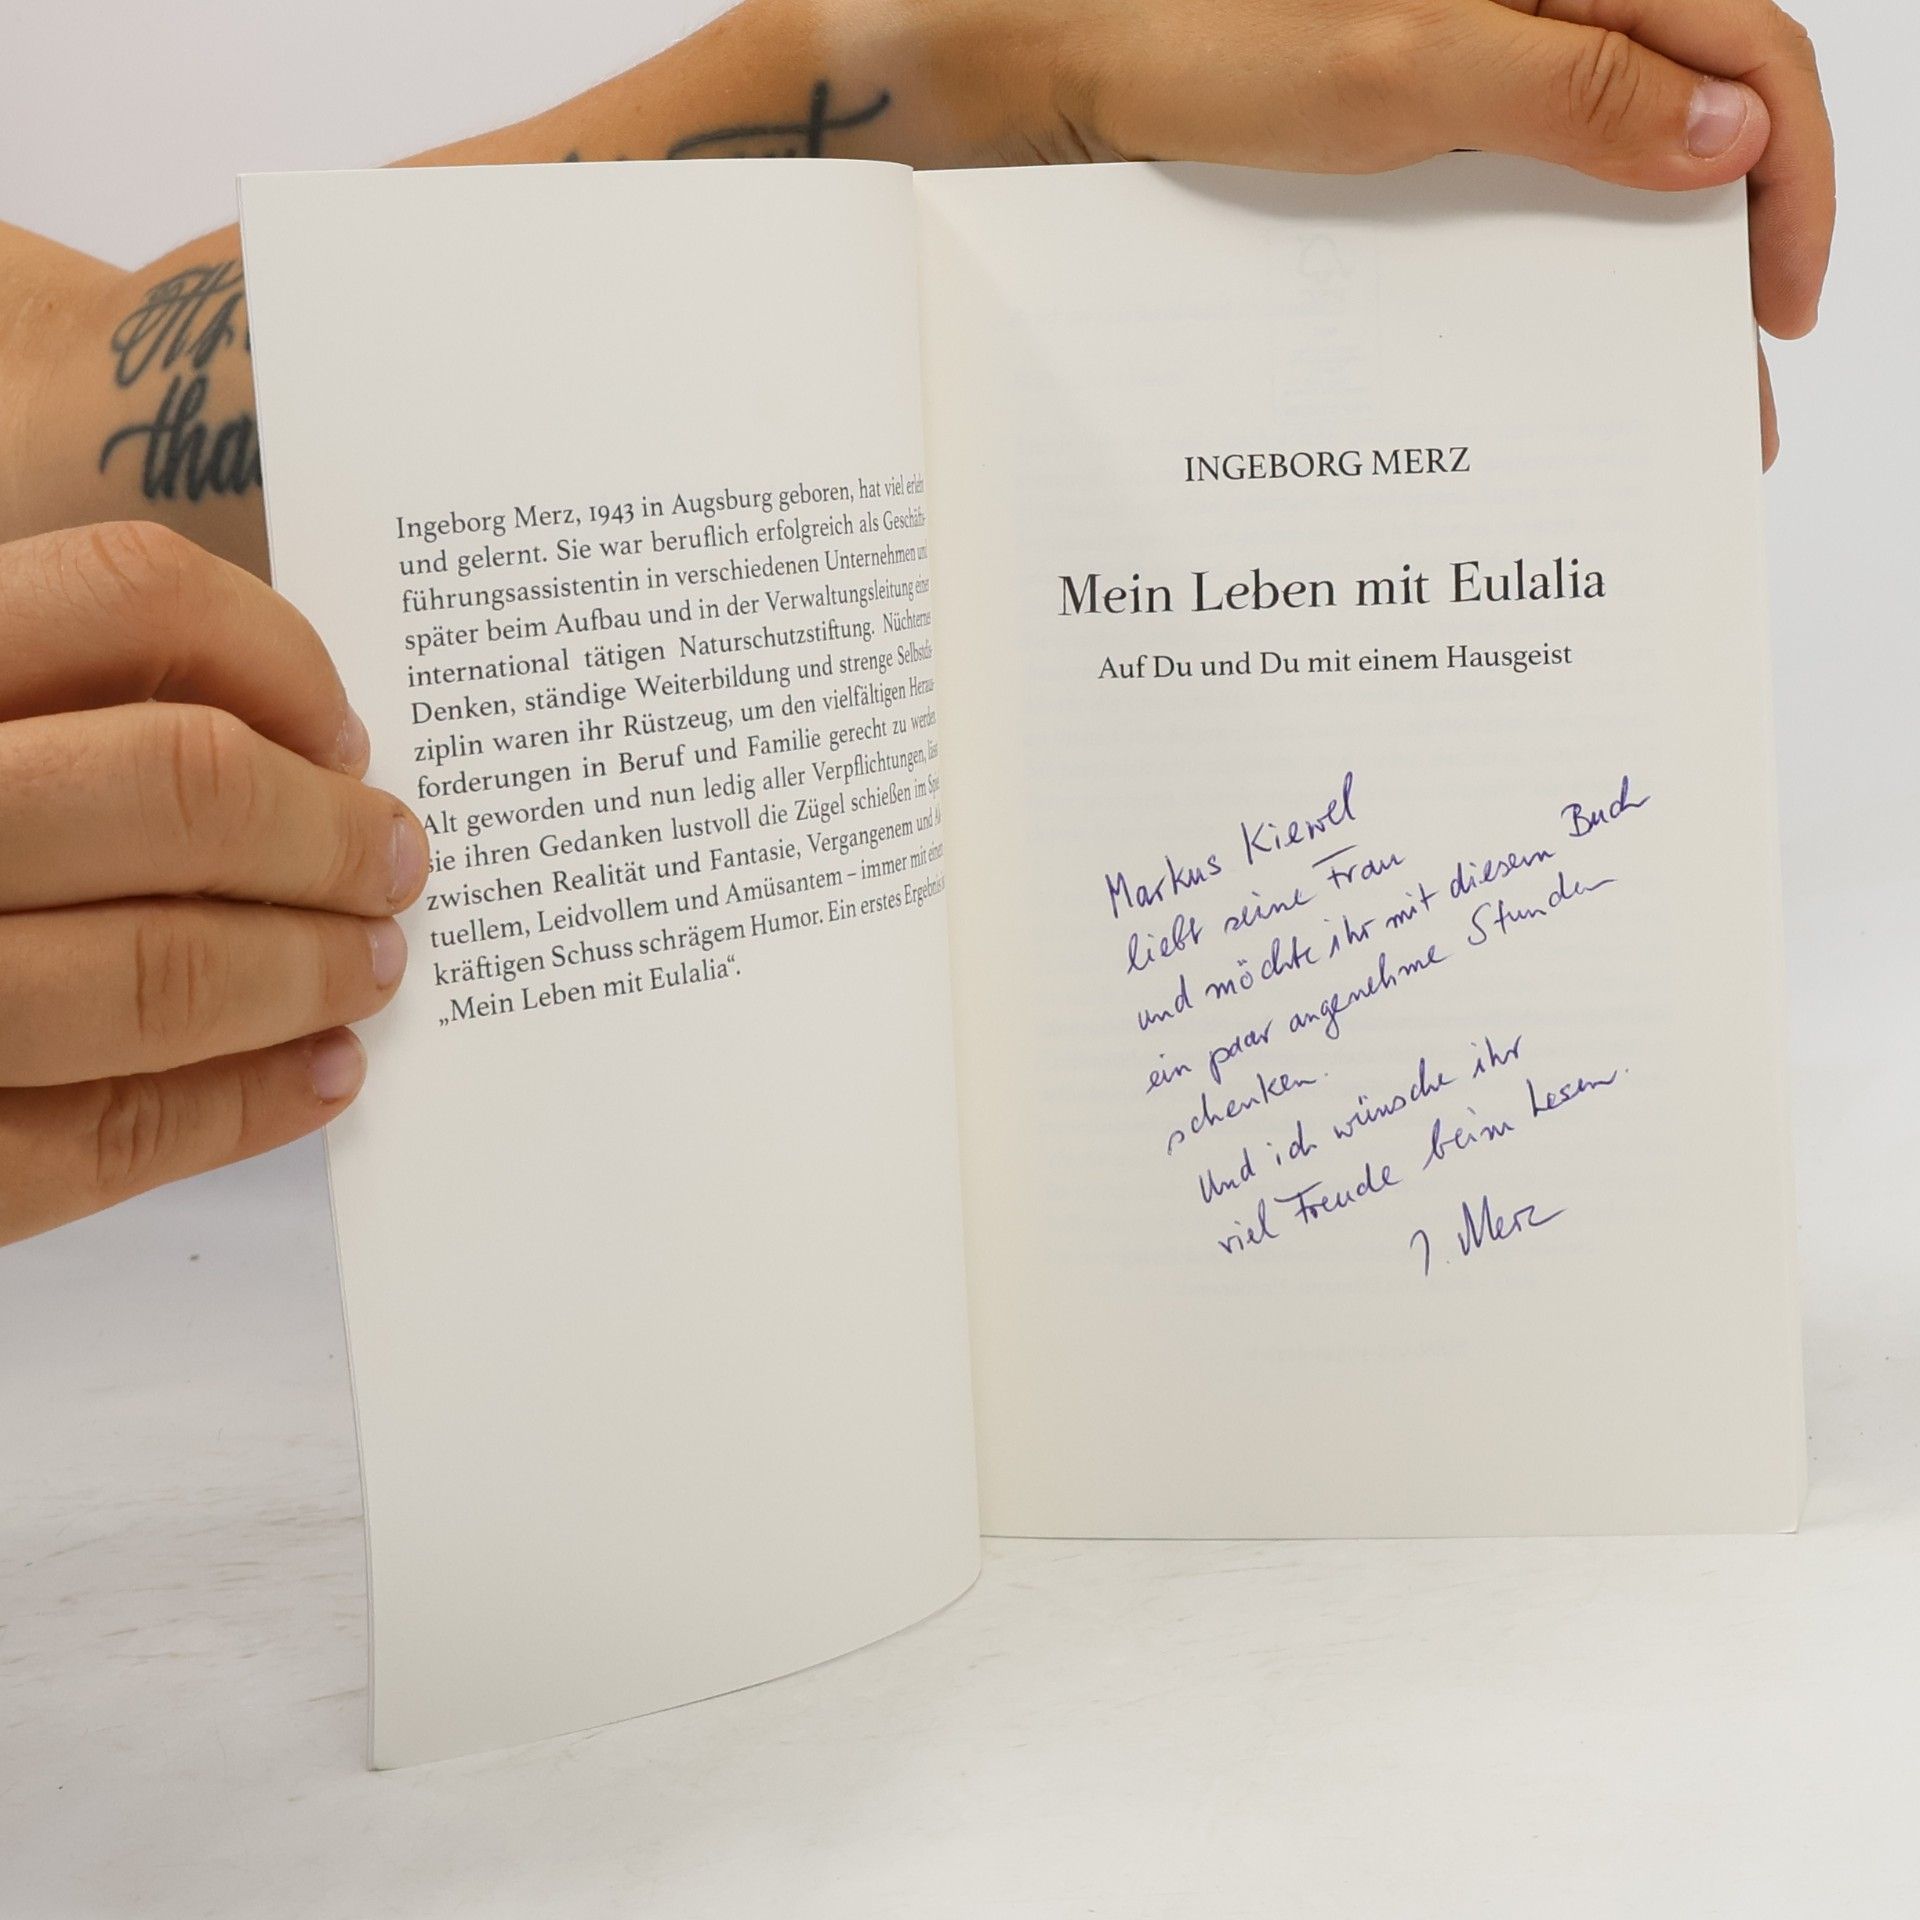 tha
Ingeborg Merz, 1943 in Augsburg geboren, hat viel erlebt
und gelernt. Sie war beruflich erfolgreich als Geschäfts-
führungsassistentin in verschiedenen Unternehmen und
später beim Aufbau und in der Verwaltungsleitung einer
international tätigen Naturschutzstiftung. Nüchternes
Denken, ständige Weiterbildung und strenge Selbstdis-
ziplin waren ihr Rüstzeug, um den vielfältigen Heraus-
forderungen in Beruf und Familie gerecht zu werden.
Alt geworden und nun ledig aller Verpflichtungen, lässt
sie ihren Gedanken lustvoll die Zügel schießen im Spiel
zwischen Realität und Fantasie, Vergangenem und Ak-
tuellem, Leidvollem und Amüsantem – immer mit einem
kräftigen Schuss schrägem Humor. Ein erstes Ergebnis ist
„Mein Leben mit Eulalia“.
INGEBORG MERZ
Mein Leben mit Eulalia
Auf Du und Du mit einem Hausgeist
Markus Kiewel
liebt seine Frau
und möchte ihr mit diesem Buch
ein paar angenehme Stunden
schenken.
Und ich wünsche ihr
viel Freude beim Lesen.
I. Merz